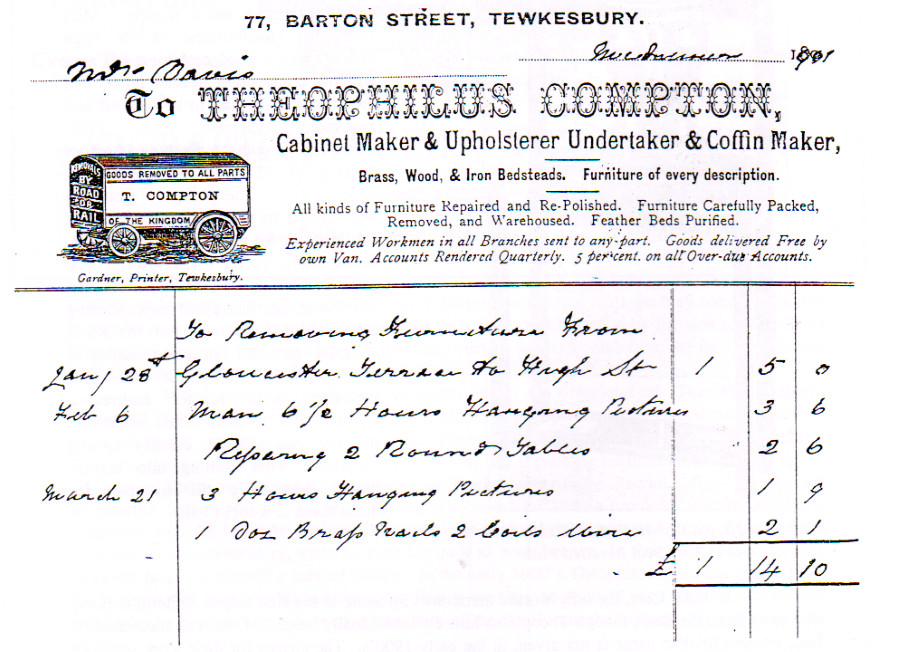 77, BARTON STREET, TEWKESBURY.
Midsummer 1891
Mr Davis
To THEOPHILUS COMPTON,
Cabinet Maker & Upholsterer Undertaker & Coffin Maker,
Brass, Wood, & Iron Bedsteads. Furniture of every description.
All kinds of Furniture Repaired and Re-Polished. Furniture Carefully Packed,
Removed, and Warehoused. Feather Beds Purified.
Experienced Workmen in all Branches sent to any part. Goods delivered Free by
own Van. Accounts Rendered Quarterly. 5 per cent. on all Over-due Accounts.
REMOVALS
BY
ROAD
OR
RAIL
GOODS REMOVED TO ALL PARTS
T. COMPTON
OF THE KINGDOM
Gardner, Printer, Tewkesbury.
To Removing Furniture From
Jany 28th Gloucester Terrace to High St 1 5 0
Feb 6 Man 6 1/2 Hours Hanging Pictures 3 6
Reparing 2 Round Tables 2 6
March 21 3 Hours Hanging Pictures 1 9
1 Doz Brass Nails 2 Coils Wire 2 1
£ 1 14 10